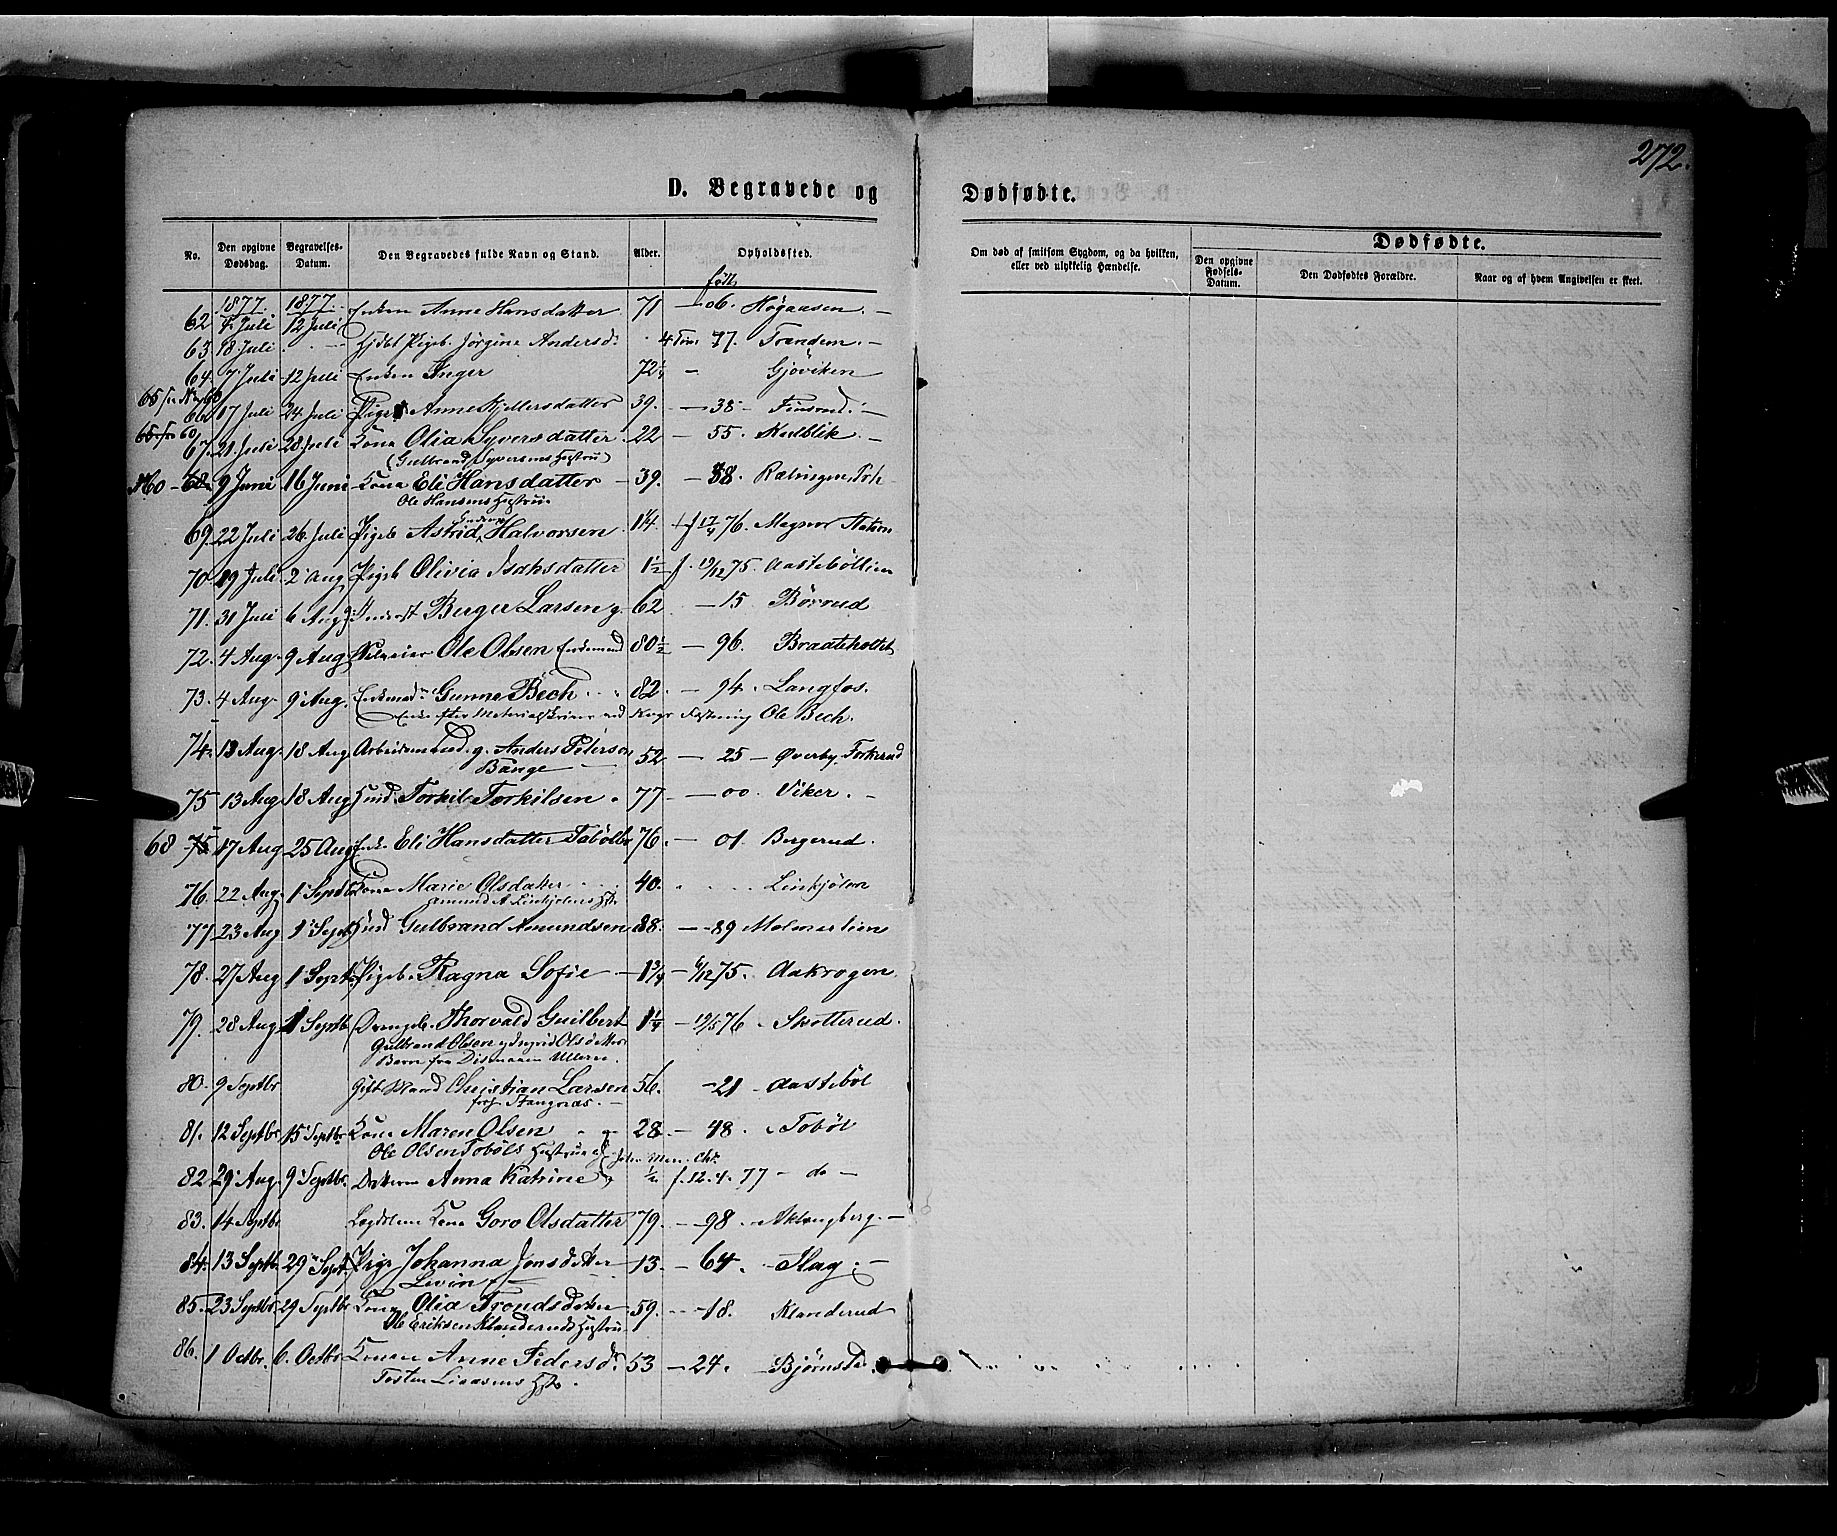 272.
D. Begravede og Dødfødte.
No. Den opgivne Dødsdag. Begravelses-Datum. Den Begravedes fulde Navn og Stand. Alder. Opholdssted. Om død af smitsom Sygdom, og da hvilken, eller ved ulykkelig Hændelse. Dødfødte. Den opgivne Fødsels-Datum. Den Dødfødtes Forældre. Naar og af hvem Angivelsen er skeet.
født
1877. 1877.
62 7 Juli 12 Juli Enken Anne Hansdatter 71 — 06. Høgaasen. —
63 18 Juli Pigeb. Jörgine Andersd. 4 77. Trandem. —
64 7 Juli 12 Juli Enken Inger 72 1/4 — Gjöviken
65 se No 60
66 17 Juli 24 Juli Pige Anne Kjellersdatter 39. — 38 — Finsrud. —
67 21 Juli 28 Juli Kone Olia Syversdatter 22 — 55. —
(Gulbrand Syversens Hustru)
No 60 — 68 9 Juni 16 Juni Kone Eli Hansdatter — 39. — 38.
Ole Hansens Hustru
69. 22 Juli 26. Juli Pigeb Astrid Halvorsen 1 1/4 f 17/4 76. Magnor Station
70. 19 Juli 2 Aug Pigeb Olivia Isaksdatter 1 1/2 f. 19/12 75. Aastebölien
71. 31 Juli 6 Aug Inderst Berger Larsen g. 62 — 15 Börrud
72. 4 Aug. 9 Aug Ole Olsen Enkemand 80 1/2 — 96. Braateholtet
73. 4 Aug. 9 Aug. Enkemad. Gunne Bech 82. — 94. Langfos.
Enke efter Materialskriver ved Kongs Fæstning Ole Bech.
74. 13 Aug. 18 Aug Arbeidsmand g. Anders Peterson 52 — 25 — Øverby, Torkerud
Bange
75 13 Aug 18 Aug Torkil Torkilsen. 77 — 00. Viker. —
68 75 17 Aug 25 Aug Enke Eli Hansdatter Tobölbr 76. — 01. Bergerud.
76. 22 Aug. 1 Septbr Kone Marie Olsdatter 40. Linkjölen
Amund A. Linkjölens H.
77. 23 Aug 1 Septbr Gulbrand Amundsen 88. — 89 Malmerlien
78. 27 Aug 1 Septbr Pigeb. Ragna Sofie — 1 3/4 — 6/12 75. Aakrogen.
79. 28 Aug. 1 Septbr Drengeb. Thorvald Guilbert 1 1/4 — 19/5 76 Skotterud.
Gulbrand Olsen og Ingrid Olsdatters
Barn fra Dismaaen Ullern.
80. 9 Septbr Gift Mand Christian Larsen 56. — 21 Aasteböl
forh. Stangnæs. —
81. 12 Septbr 15 Septbr Kone Maren Olsen 28 — 48. Toböl
Ole Olsen Toböls Hustru
82 29 Aug. 9 Septbr. Anna Katrine 1/2 f. 12. 4. 77 — do —
83. 14 Septbr Lægdslem Kone Goro Olsdatter 79. — 98. Aklangberg. —
84. 13 Septbr 29 Septbr. Pige Johanna Jonsdatter 13. — 64. Hag. —
Levin
85. 23 Septbr 29 Septbr Kone Olia Trondsdatter 59. — 18. Klanderud
Ole Eriksen Klanderuds Hustru
86. 1 Octbr. 6. Octbr Konen Anne Pedersd. 53 — 24. Björnstad.
Tosten Liaasens H.